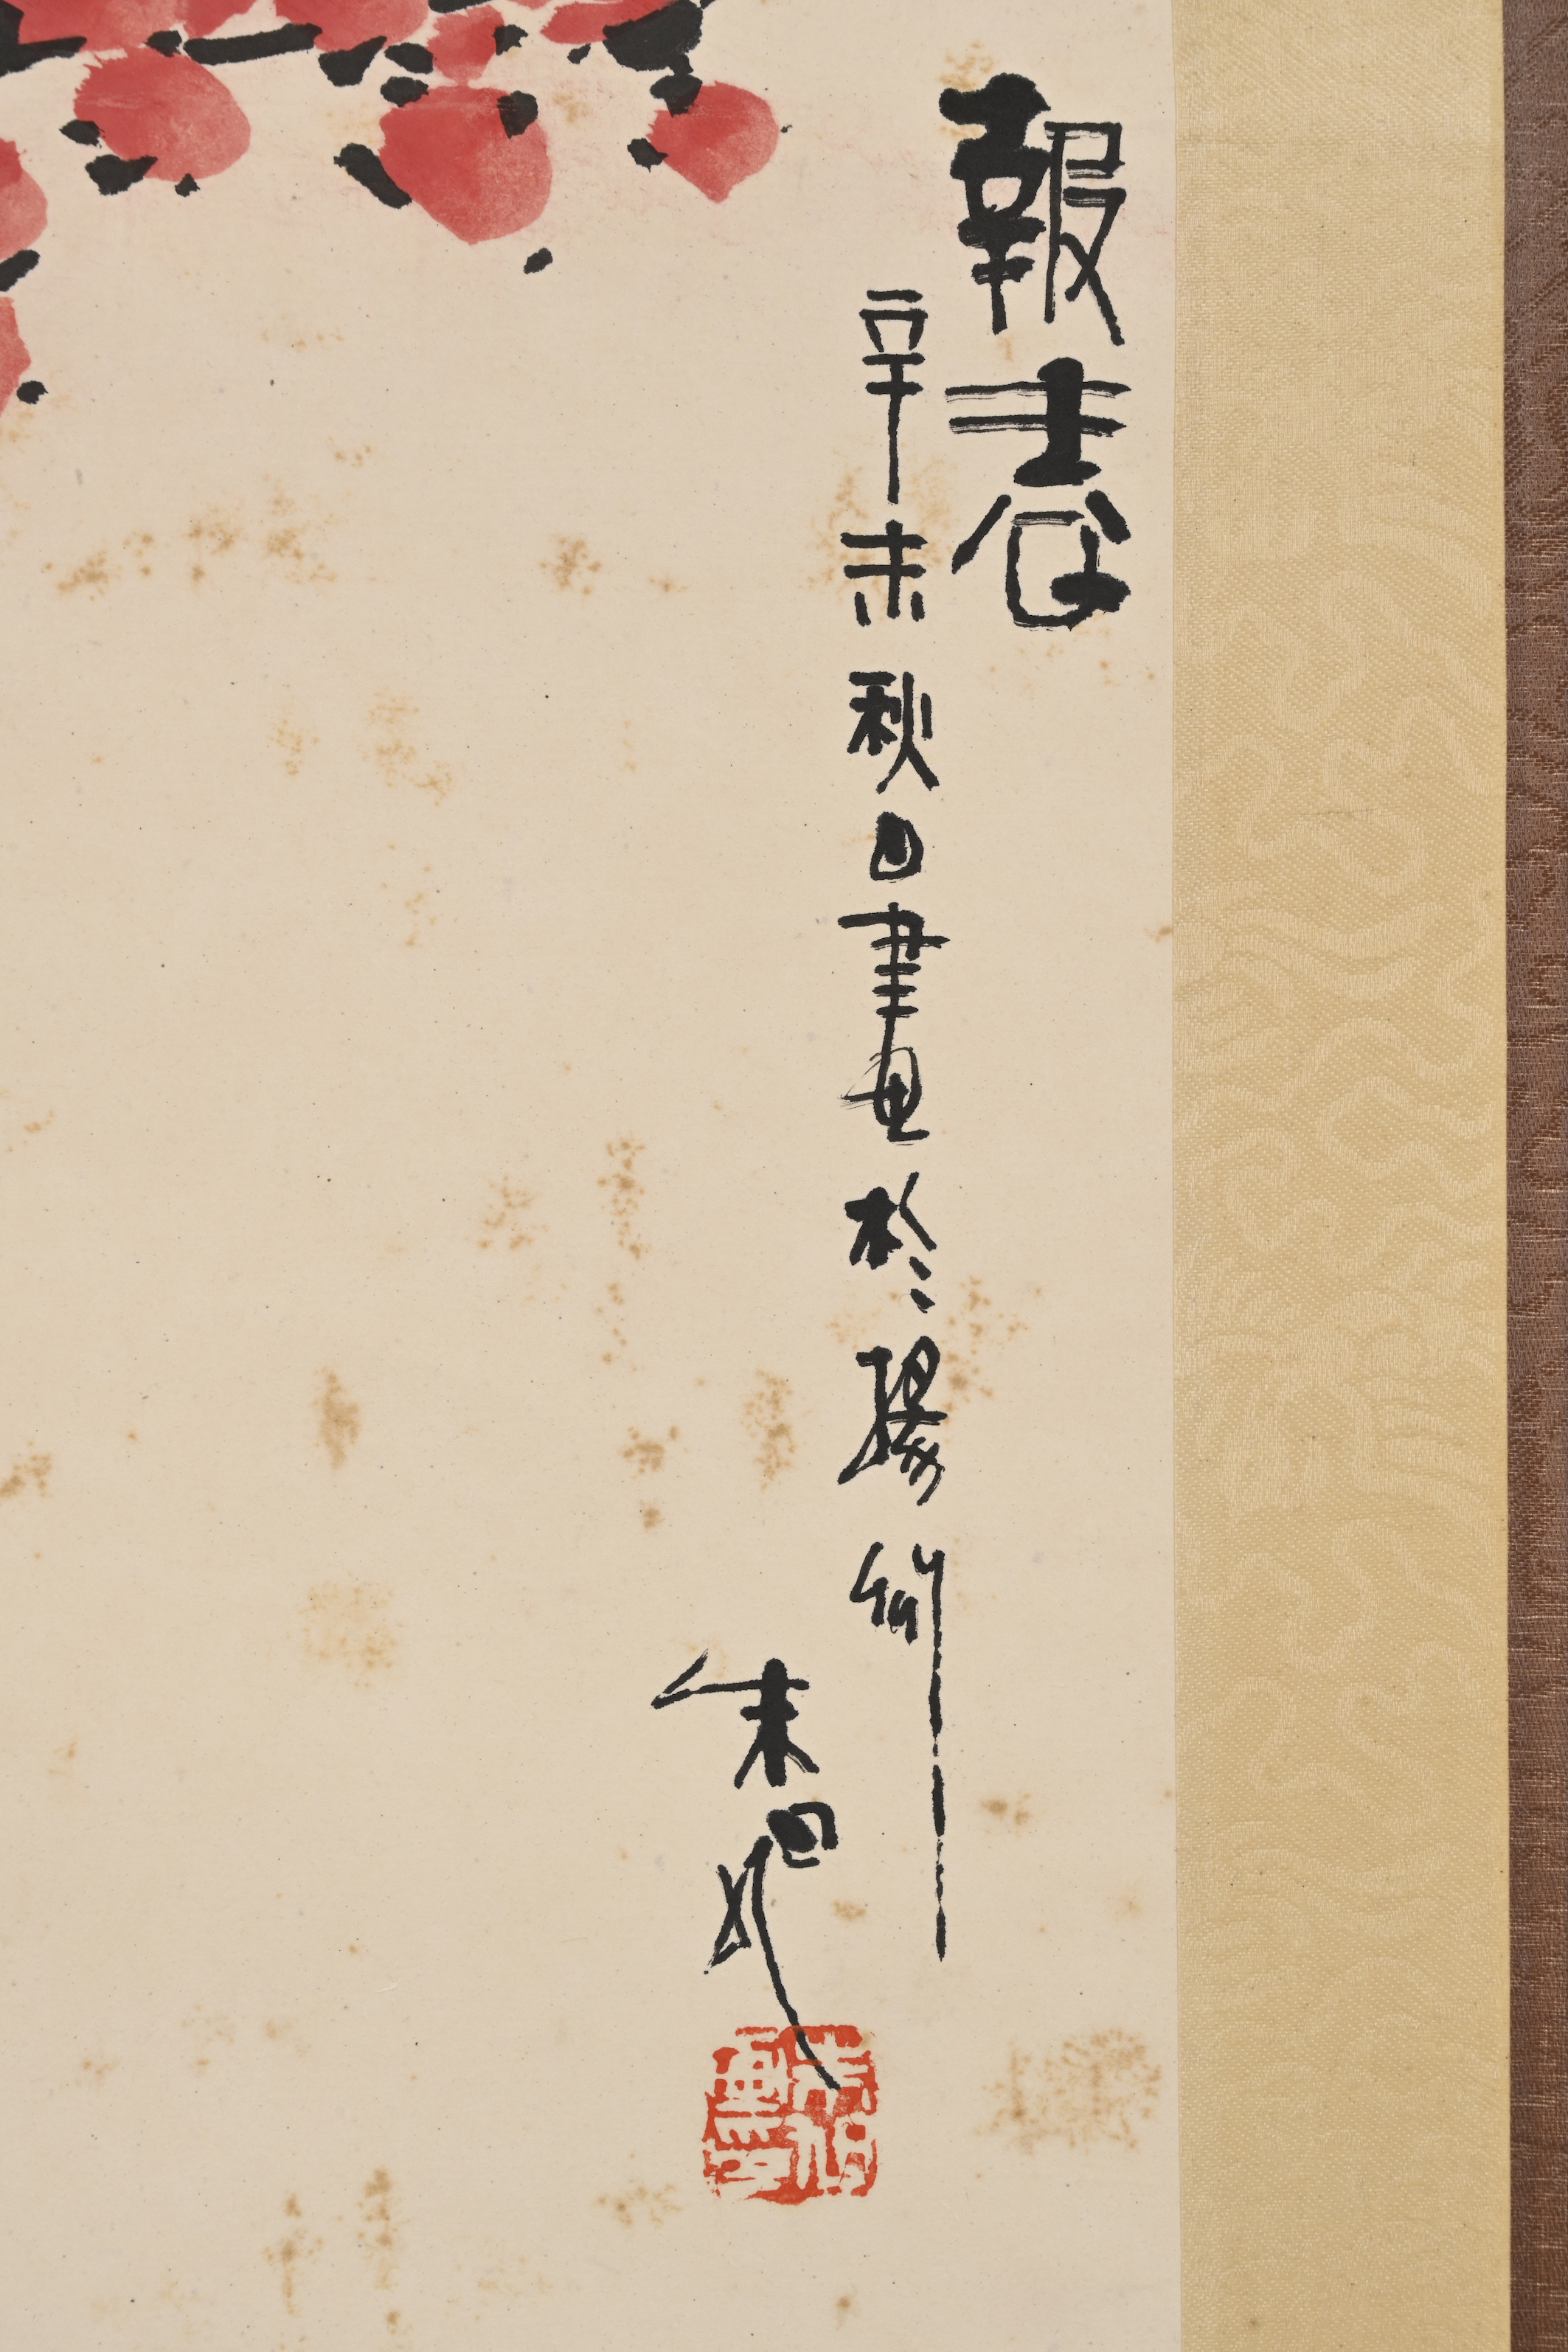 報春
辛未秋日畫於揚州
朱